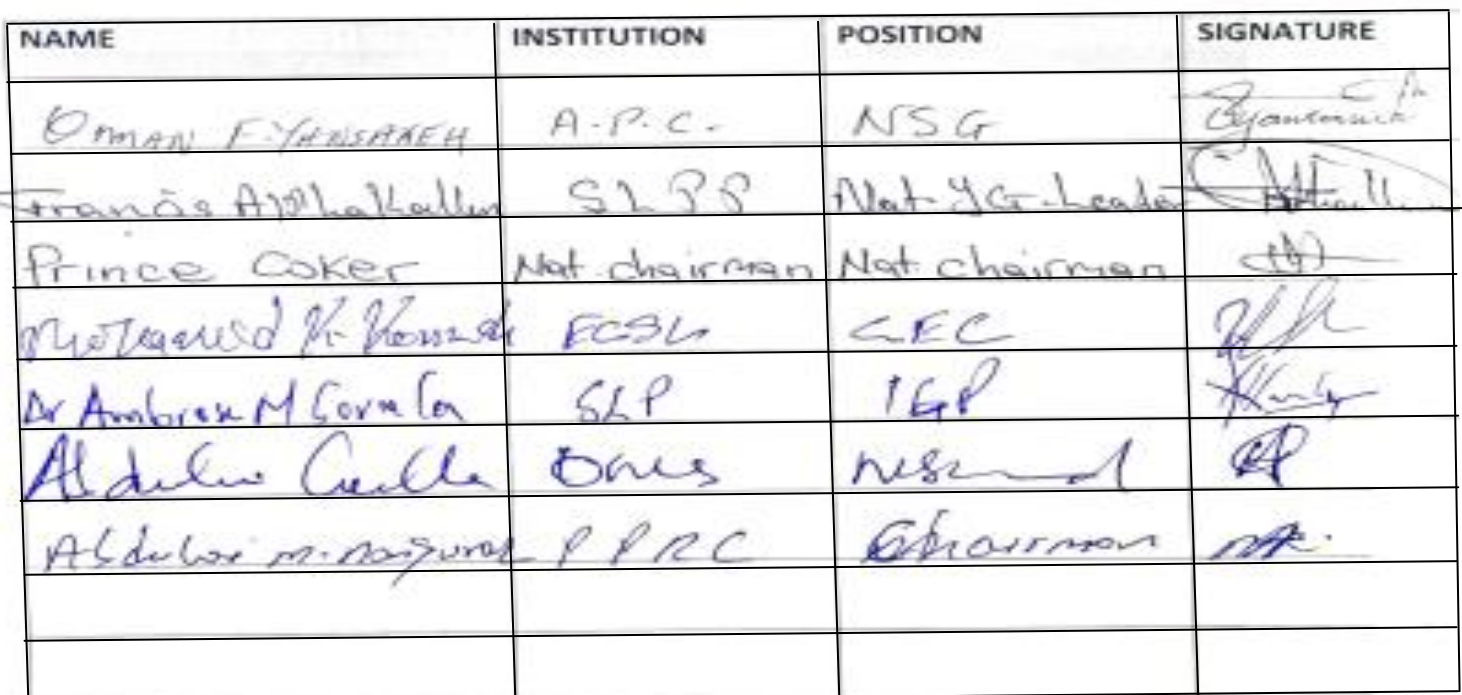 NAME INSTITUTION POSITION SIGNATURE
OSMAN F. YANSANEH A.P.C. NSG
Francis Alpha Kallon SLPP Nat. YG. Leader
Prince Coker Nat. chairman Nat. chairman
Mohamed K. Konneh ECSL CEC
Dr Ambrose M Sovula SLP IGP
Abdulai Caulker ONS
Abdulai M. PPRC Chairman